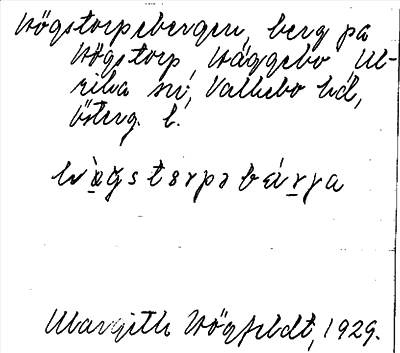 Högstorpsbergen, berg på
Högstorp, Häggebo Ul-
rika sn, Valkebo hd,
Österg. l.
hö̀gstorpsbärja
Margith Högfeldt, 1929.